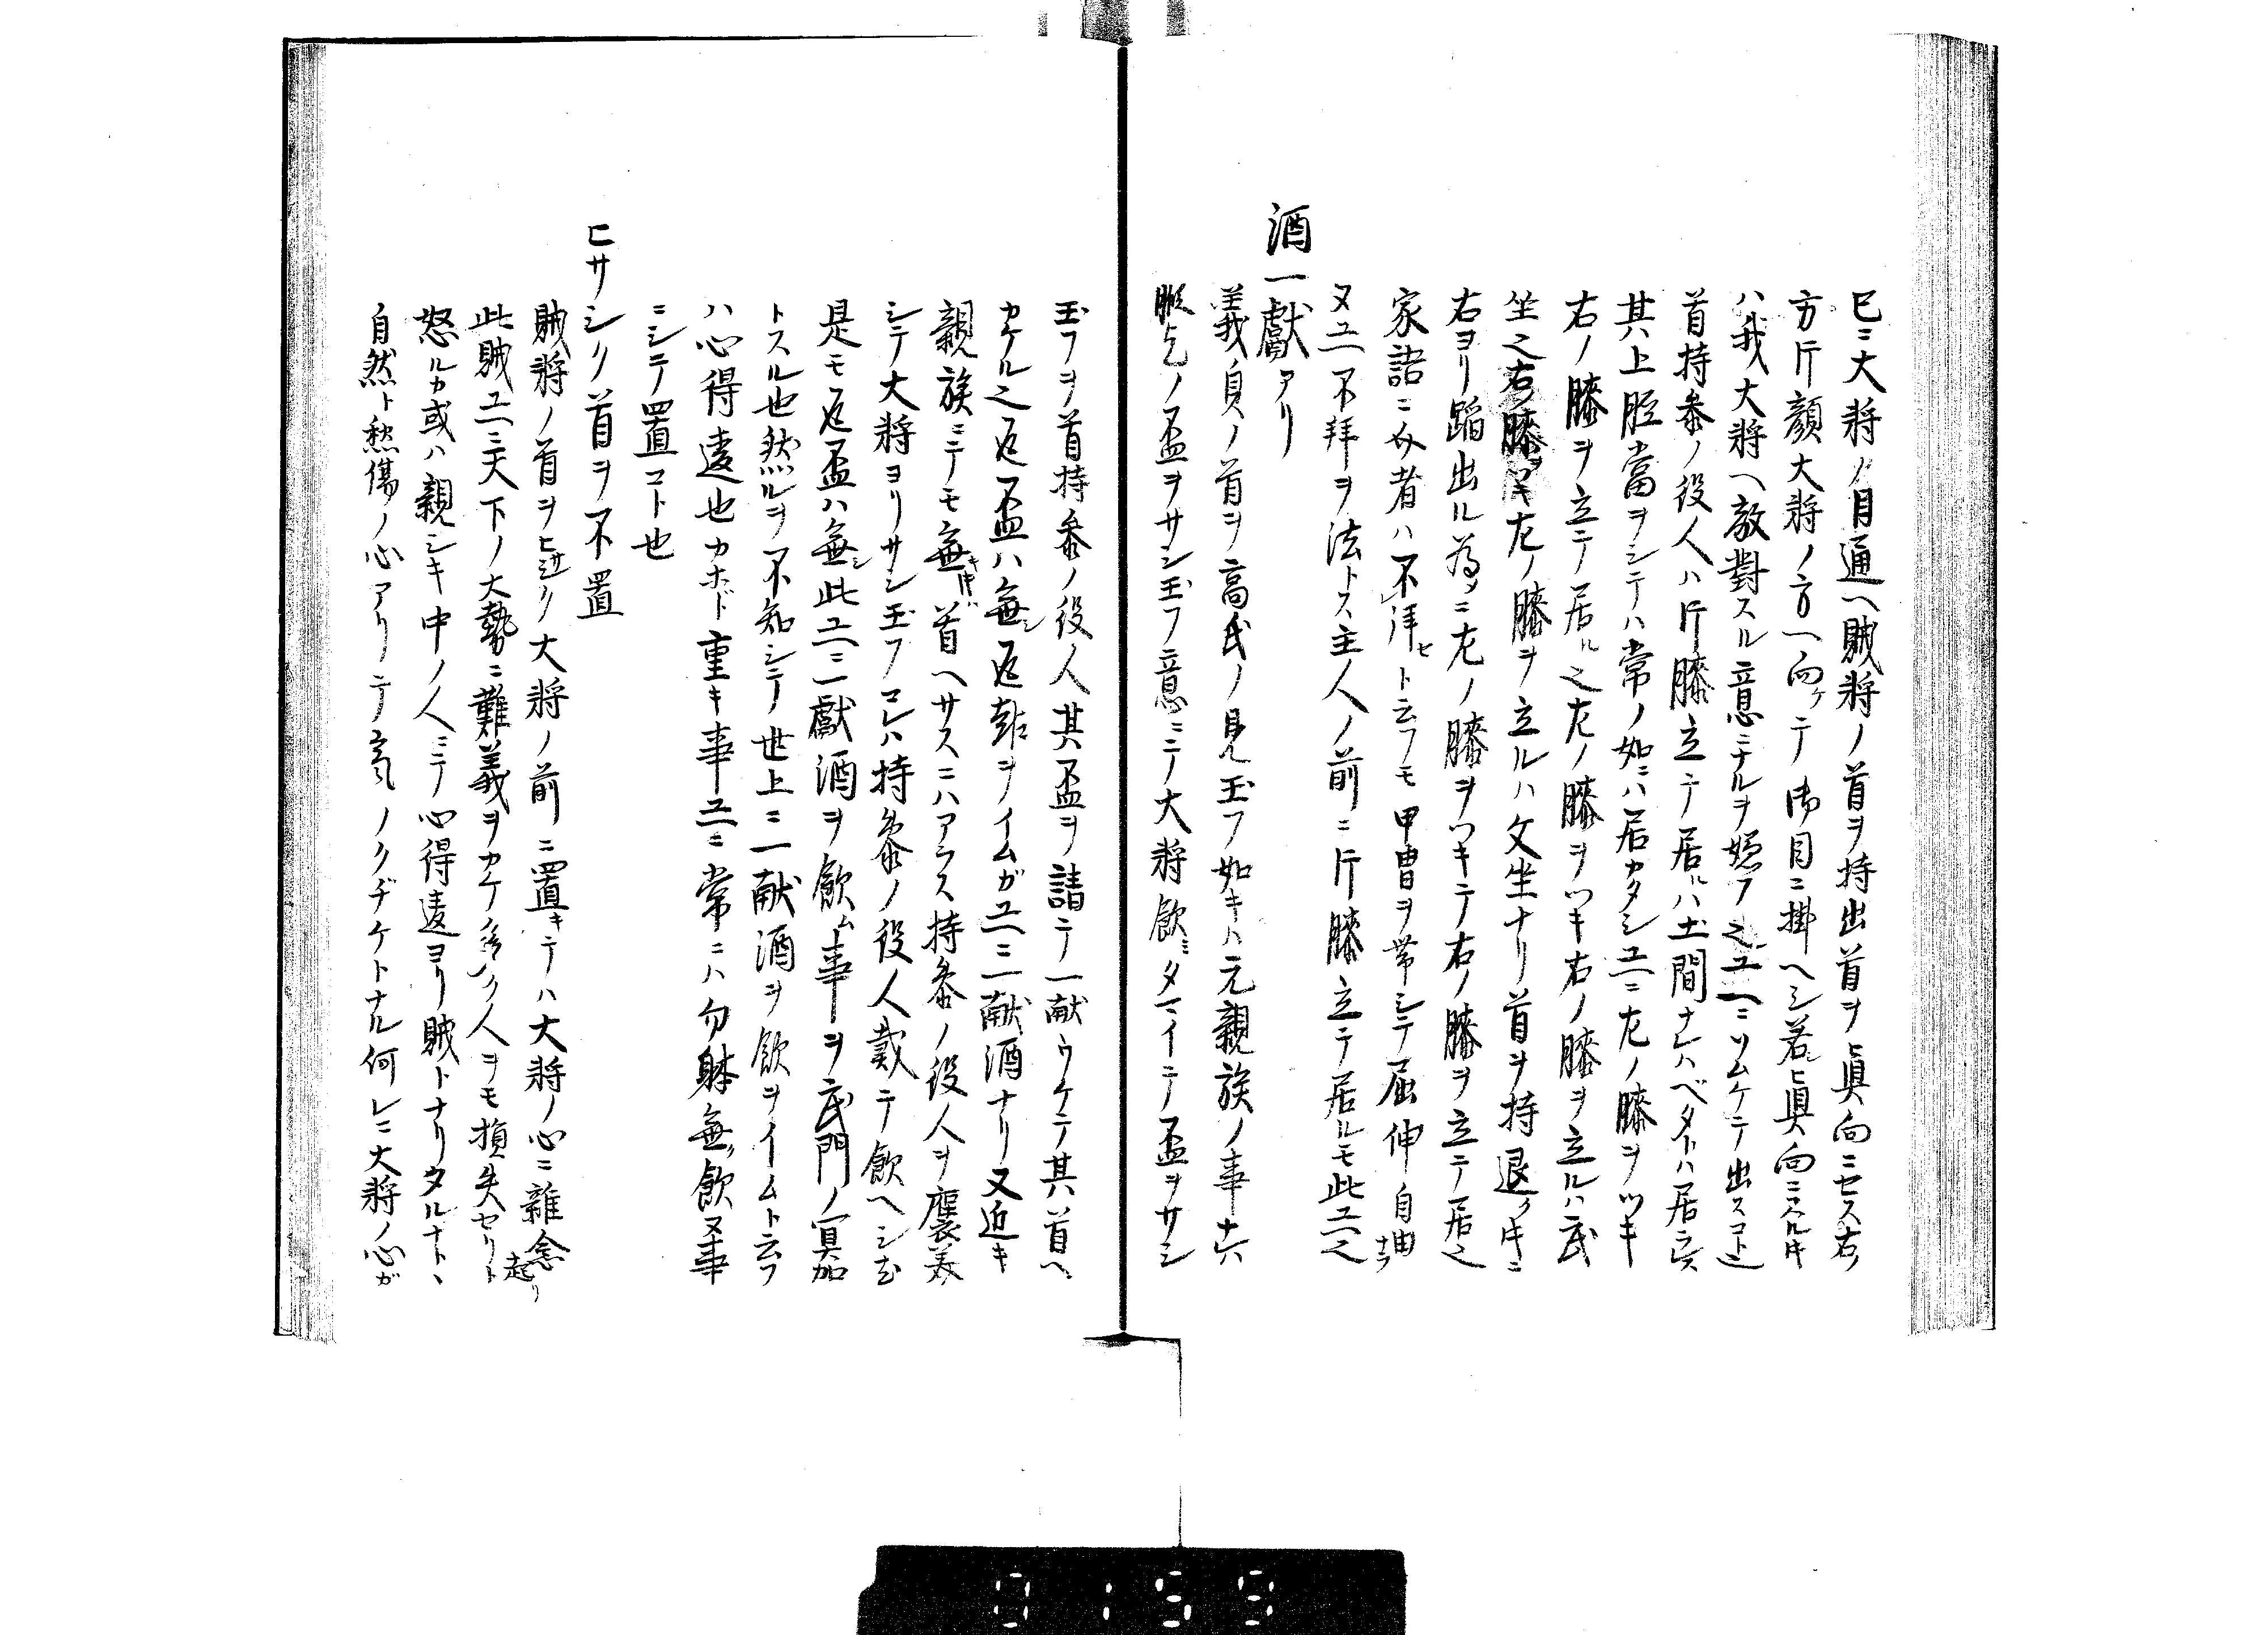 已ニ大将ノ目通ヘ賊将ノ首ヲ持出首ヲ眞向ニセス右ノ
方片顔大将ノ方ヘ向ケテ御目ニ掛ヘシ若眞向ニスル片
ハ我大将ヘ敵對スル意ニナルヲ嫌フ之ユヘニソムケテ出スコト之
首持参ノ役人ハ片膝立テ居ル土間ナレハベタトハ居ラレス
其上脛當ヲシテハ常ノ如ニハ居カタシユヘニ左ノ膝ヲツキ
右ノ膝ヲ立テ居ル之左ノ膝ヲツキ右ノ膝ヲ立ルハ武
坐之右膝ヲツキ左ノ膝ヲ立ルハ文坐ナリ首ヲ持退ク片ニ
右ヨリ蹈出ル為ニ左ノ膝ヲツキテ右ノ膝ヲ立テ居之
家語ニ介者ハ不拝セト云フモ甲冑ヲ帯シテ屈伸自由ナラ
ヌユヘ不拜ヲ法トス主人ノ前ニ片膝立テ居ルモ此ユヘ之
酒一獻アリ
義貞ノ首ヲ髙氏ノ見玉フ如キハ元親族ノ事ナレハ
暇乞ノ盃ヲサシ玉フ意ニテ大将飲ミタマイテ盃ヲサシ
玉フヲ首持参ノ役人其盃ヲ請テ一献ウケテ其首ヘ
カケル之返盃ハ無シ返報ヲイムガユヘニ一献酒ナリ又近キ
親族ニテモ無キ片ハ首ヘサスニハアラス持参ノ役人ヲ褒美
シテ大将ヨリサシ玉フコレハ持参ノ役人戴テ飲ヘシ
是モ返盃ハ無シ此ユヘニ一獻酒ヲ飲ム事ヲ武門ノ冥加
トスル也然ルヲ不知シテ世上ニ一献酒ヲ飲ヲイムト云フ
ハ心得違也カホド重キ事ユヘニ常ニハ勿躰無ク飲ヌ事
ニシテ置コト也
ヒサシク首ヲ不置
賊将ノ首ヲヒサシク大将ノ前ニ置キテハ大将ノ心ニ雜念起リ
此賊ユヘニ天下ノ大勢ニ難義ヲカケ多クノ人ヲモ損失セリト
怒ルカ或ハ親シキ中ノ人ニテ心得違ヨリ賊トナリタルナト丶
自然ト愁傷ノ心アリテ氣ノクヂケトナル何レニ大将ノ心ガ
0199